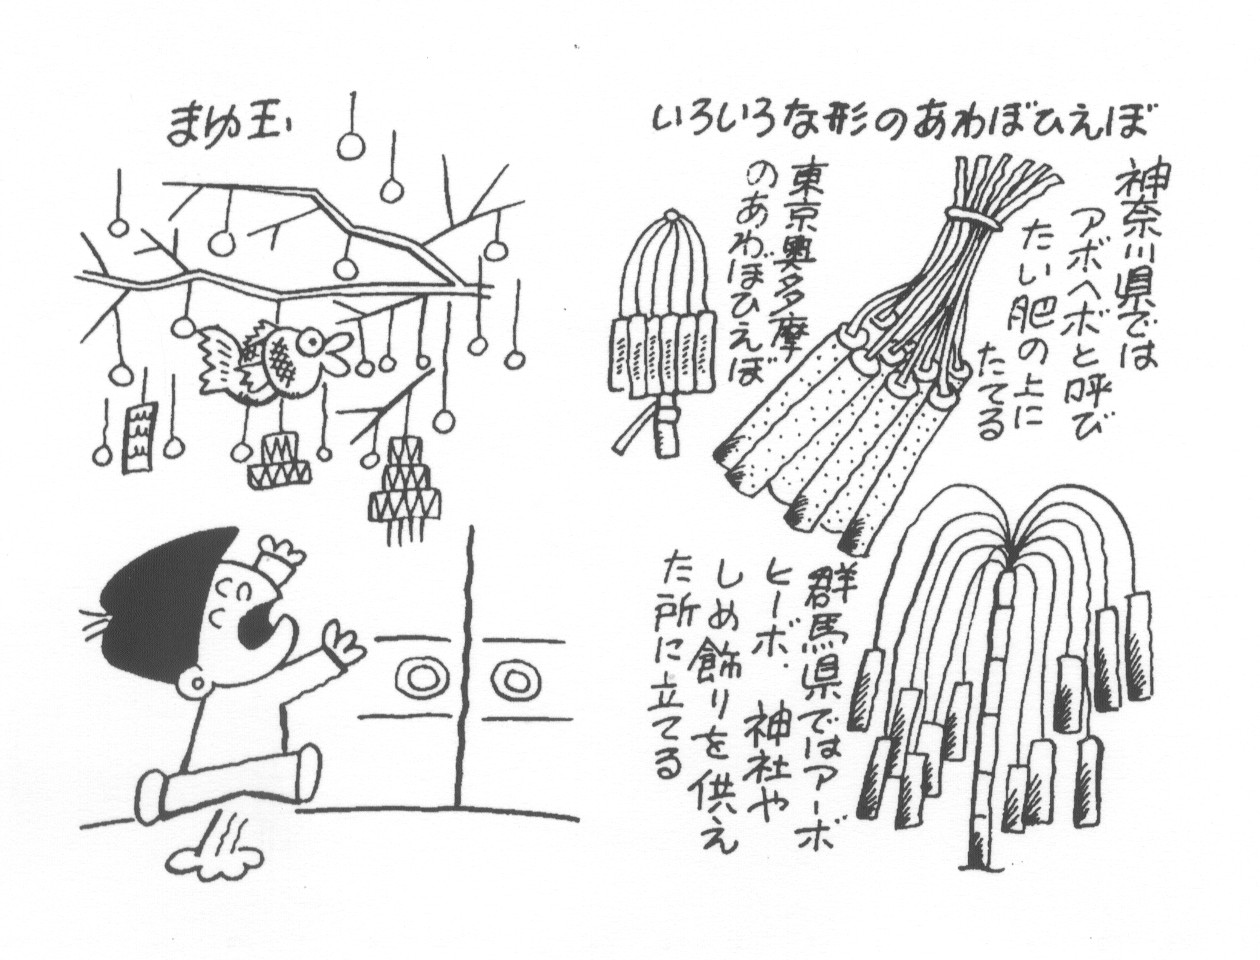 まゆ玉
いろいろな形のあわぼひえぼ
神奈川県では
アボヘボと呼び
たい肥の上に
たてる
東京奥多摩
のあわぼひえぼ
群馬県ではアーボ
ヒーボ. 神社や
しめ飾りを供え
た所に立てる